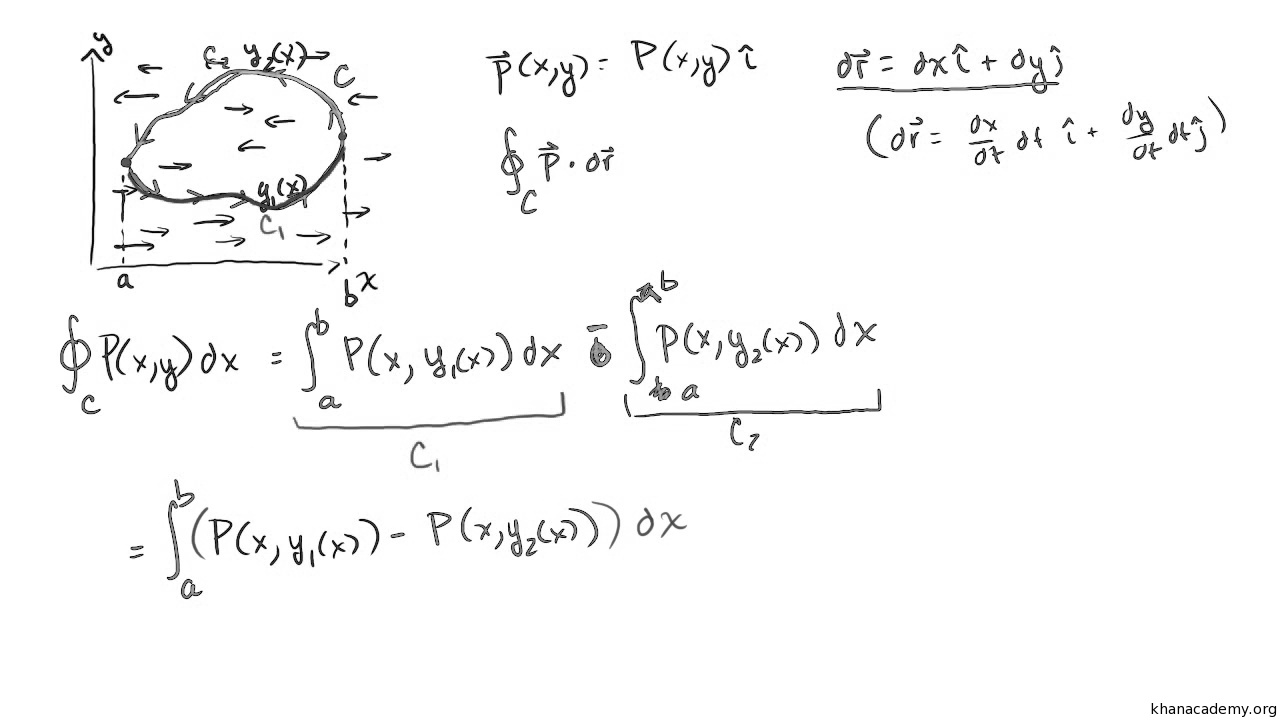 y
C₂ y₂(x)
C
y₁(x)
C₁
a
b x
P⃗(x,y) = P(x,y) î
∮_C P⃗ · dr⃗
dr⃗ = dx î + dy ĵ
(dr⃗ = dx/dt dt î + dy/dt dt ĵ)
∮_C P(x,y) dx = ∫_a^b P(x, y₁(x)) dx - ∫_a^b P(x, y₂(x)) dx
C₁ C₂
= ∫_a^b (P(x, y₁(x)) - P(x, y₂(x))) dx
khanacademy.org